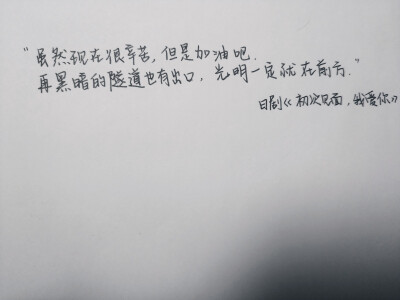 “虽然现在很辛苦,但是加油吧.
再黑暗的隧道也有出口,光明一定就在前方."
日剧《初次见面,我爱你》